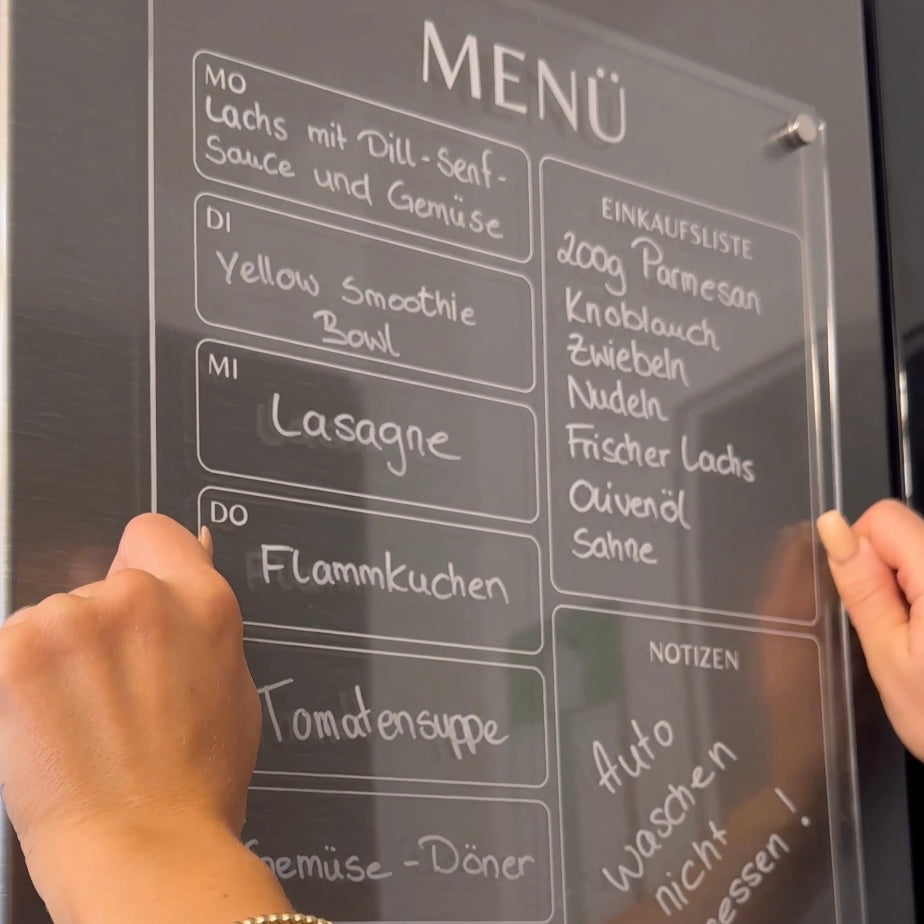 MENÜ
MO
Lachs mit Dill-Senf-
Sauce und Gemüse
DI
Yellow Smoothie
Bowl
MI
Lasagne
DO
Flammkuchen
Tomatensuppe
Gemüse-Döner
EINKAUFSLISTE
200g Parmesan
Knoblauch
Zwiebeln
Nudeln
Frischer Lachs
Olivenöl
Sahne
NOTIZEN
Auto
waschen
nicht